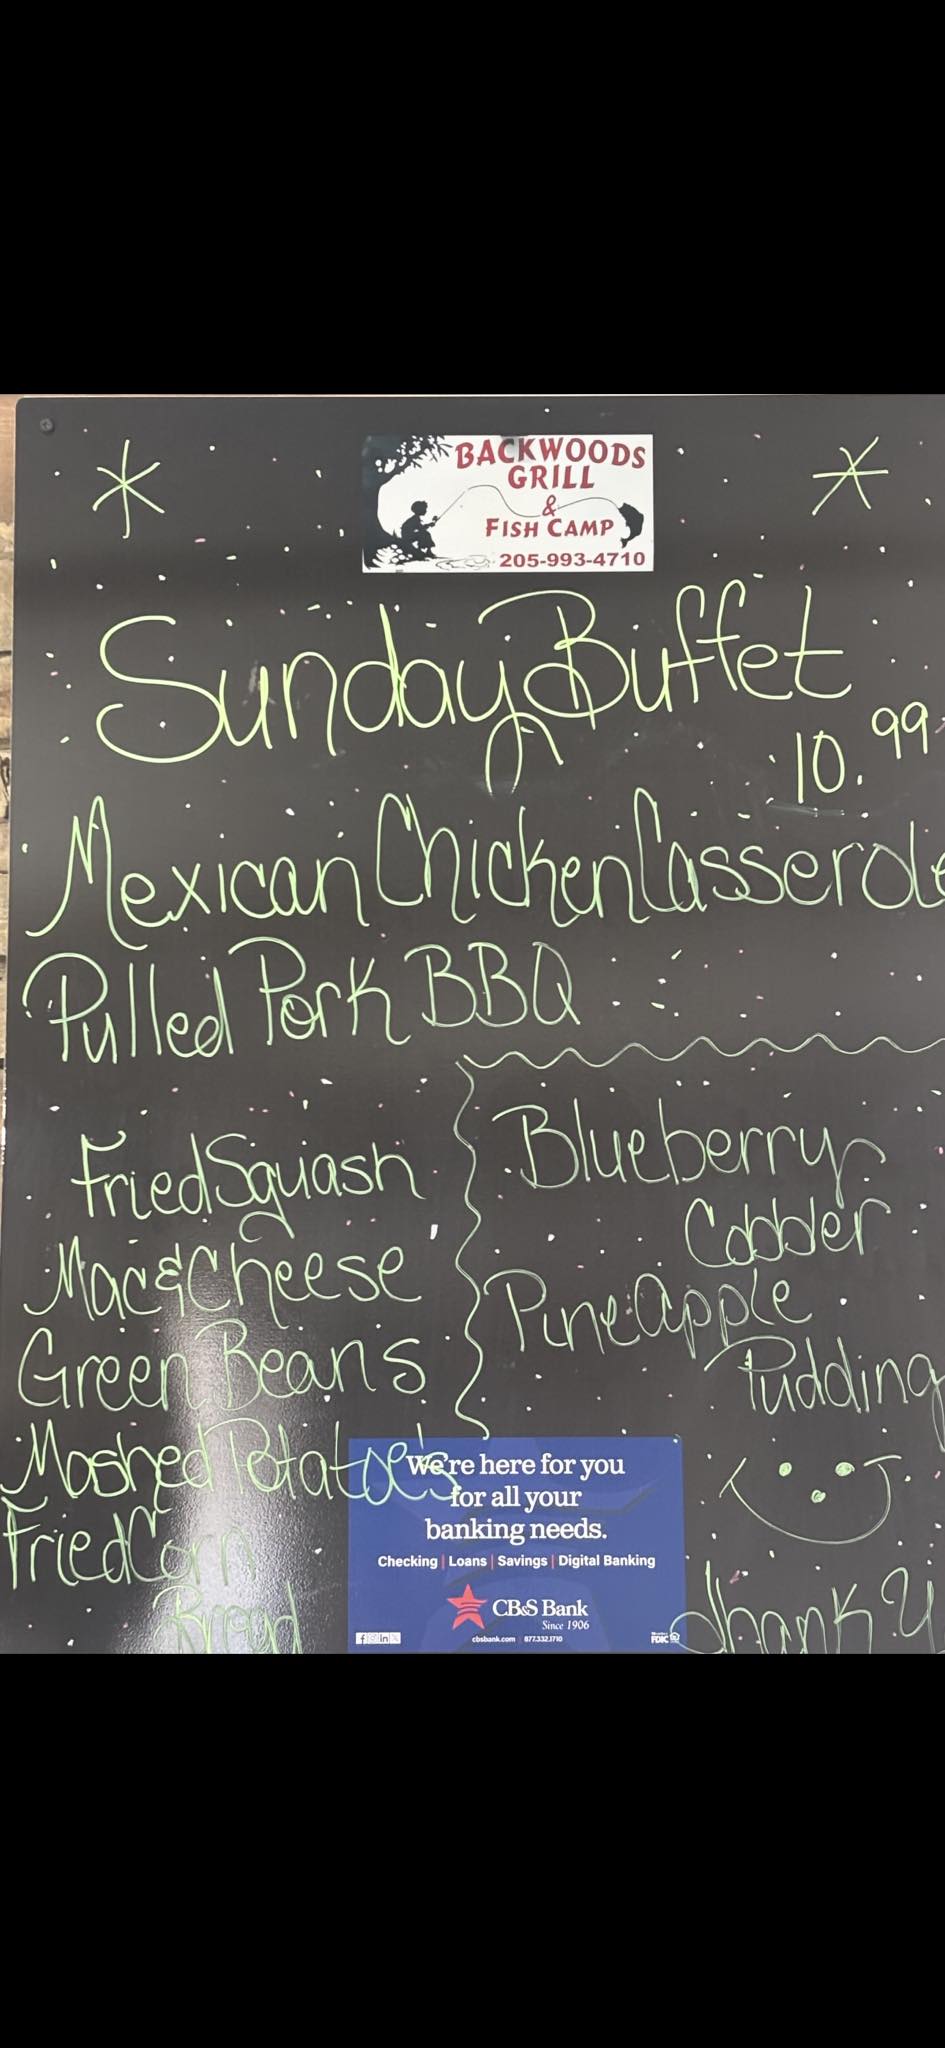 BACKWOODS
GRILL
&
FISH CAMP
205-993-4710
Sunday Buffet
10.99
Mexican Chicken Casserole
Pulled Pork BBQ
Fried Squash
Mac & Cheese
Green Beans
Mashed Potatoe's
Fried Corn
Bread
Blueberry
Cobbler
PineApple
Pudding
We're here for you
for all your
banking needs.
Checking | Loans | Savings | Digital Banking
CB&S Bank
Since 1906
cbsbank.com 877.332.1710
FDIC
Thank Y